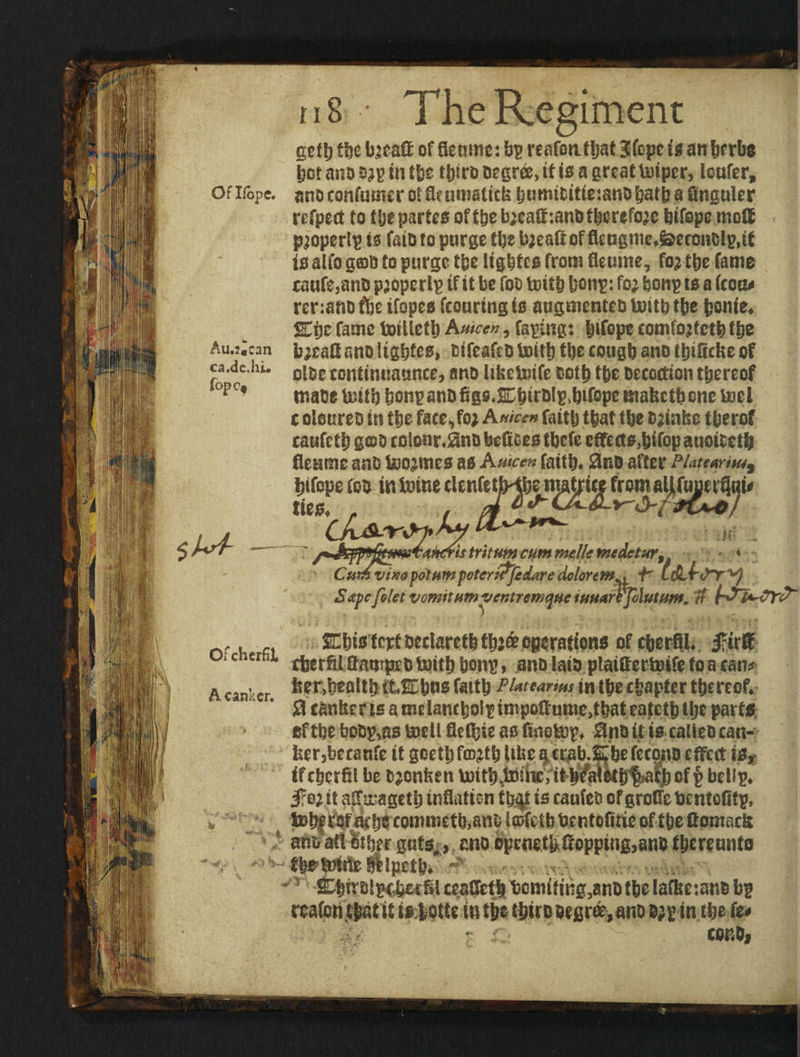 118 The Regiment
geth the breast of fleume: by reason that Iſope is an herbe
hot and dry in the third degrée, it is a great wiper, louſer,
Of Iſope.
and conſumer of fleumatick humiditie: and hath a ſinguler
reſpect to the partes of the breaſt: and therefore hiſope moſt
properly is ſaid to purge the breaſt of fleugme. Secondly, it
is alſo good to purge the lightes from fleume, for the ſame
cauſe, and properly if it be ſod with hony: for hony is a ſcou-
rer: and the iſopes ſcouring is augmented with the honie.
The ſame willeth Auicen, ſaying: hiſope comforteth the
Au.2.can
ca.de.hi.
ſopo,
breaſt and lightes, diſeaſed with the cough and thiſicke of
olde continuaunce, and likewiſe doth the decoction thereof
made with hony and figs. Thirdly, hiſope maketh one wel
coloured in the face, for Auicen ſaith that the drinke therof
cauſeth good colour. And beſides theſe effects, hiſop auoideth
fleume and wormes as Auicen ſaith. And after Platearius,
hiſope ſod in wine clenſeth the matrice from all ſuperflui-
ties.
tritum cum melle medetur,
Cum vino potum poterit ſedare dolorem,
Sæpe ſolet vomitum ventremque iuuare ſolutum.
This text declareth thrée operations of cherfil. Firſt
Of cherfil.
cherfil ſtamped with hony, and laid plaiſterwiſe to a can-
A canker.
ker, health it. Thus ſaith Platearius in the chapter thereof.
A canker is a melancholy impoſtume, that eateth the parts
of the body, as well fleſhie as ſinowy. And it is called can-
ker, becauſe it goeth foorth like a crab. The ſecond effect is,
if cherfil be dronken with wine, it healeth ach of þ belly.
For it aſſwageth inflation that is cauſed of groſſe ventoſity,
wherof ache commeth, and looſeth ventoſitie of the ſtomack
and all other guts, and openeth ſtopping, and thereunto
the wine helpeth.
Thirdly cherfil ceaſſeth vomiting, and the laſke: and by
reaſon that it is hotte in the third degrée, and dry in the ſe-
cond,